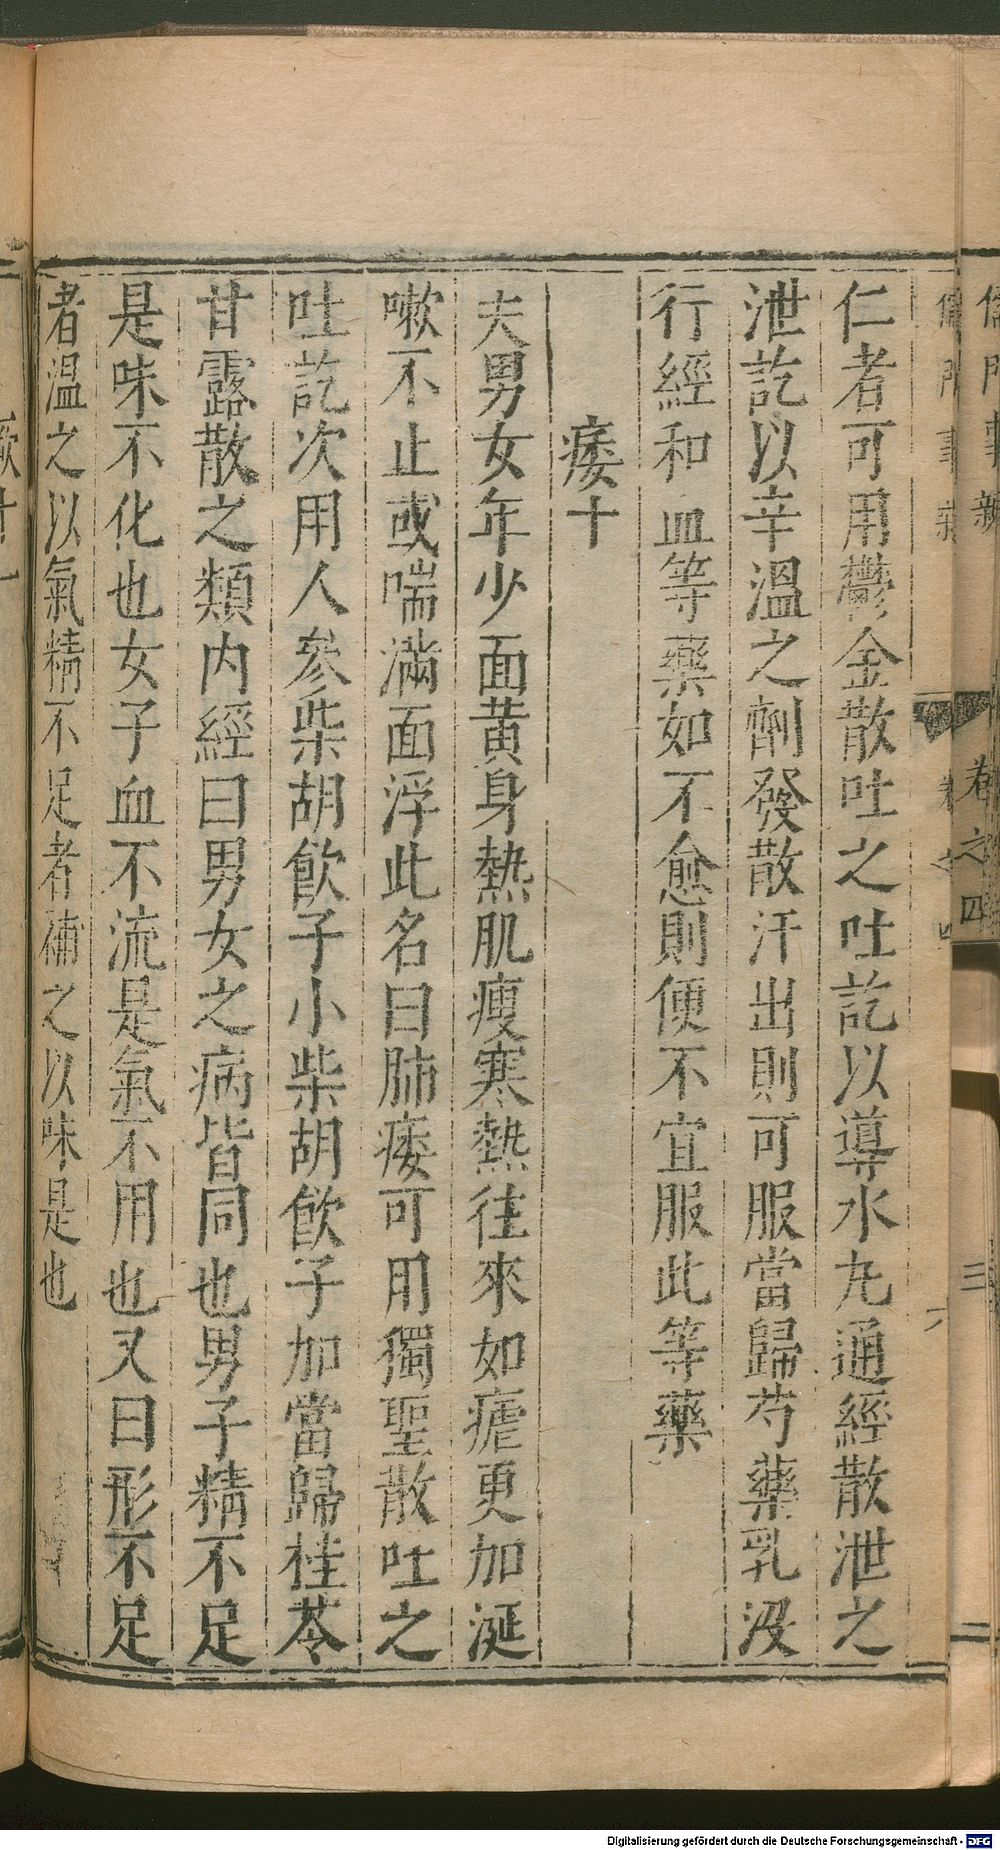 儒門事親
卷之四
三
仁者可用鬱金散吐之吐訖以導水丸通經散泄之
泄訖以辛溫之劑發散汗出則可服當歸芍藥乳沒
行經和血等藥如不愈則便不宜服此等藥
痿十
夫男女年少面黃身熱肌瘦寒熱往來如瘧更加涎
嗽不止或喘滿面浮此名曰肺痿可用獨聖散吐之
吐訖次用人參柴胡飲子小柴胡飲子加當歸桂苓
甘露散之類內經曰男女之病皆同也男子精不足
是味不化也女子血不流是氣不用也又曰形不足
者溫之以氣精不足者補之以味是也
Digitalisierung gefördert durch die Deutsche Forschungsgemeinschaft - DFG